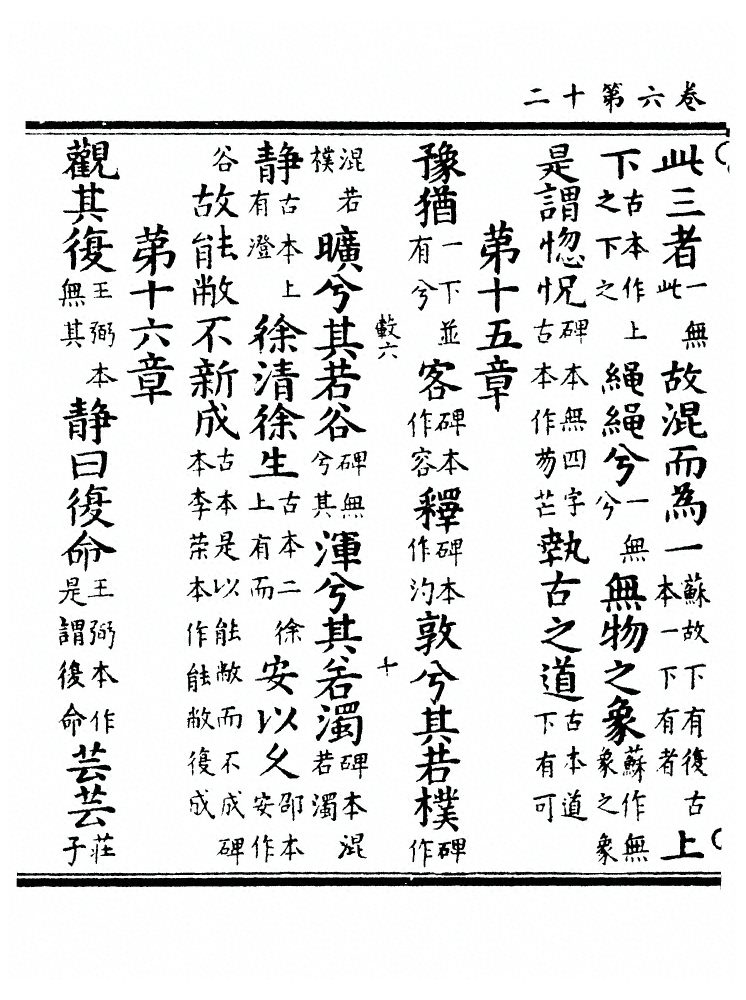 卷六第十二
此三者一無此故混而為一蘇故下有復古本一下有者上
下古本作上之下之繩繩兮一無兮無物之象蘇作無象之象
是謂惚怳碑本無四字古本作芴芒執古之道古本道下有可
第十五章
豫猶一下並有兮客碑本作容釋碑本作汋敦兮其若樸碑作
六 十
混若樸曠兮其若谷碑無兮其渾兮其若濁碑本混若濁
静古本上有澄徐清徐生古本二徐上有而安以久邵本安作
谷故能敝不新成古本是以能敝而不成碑本李荣本作能敝復成
第十六章
觀其復王弼本無其静曰復命王弼本作是謂復命芸芸莊子